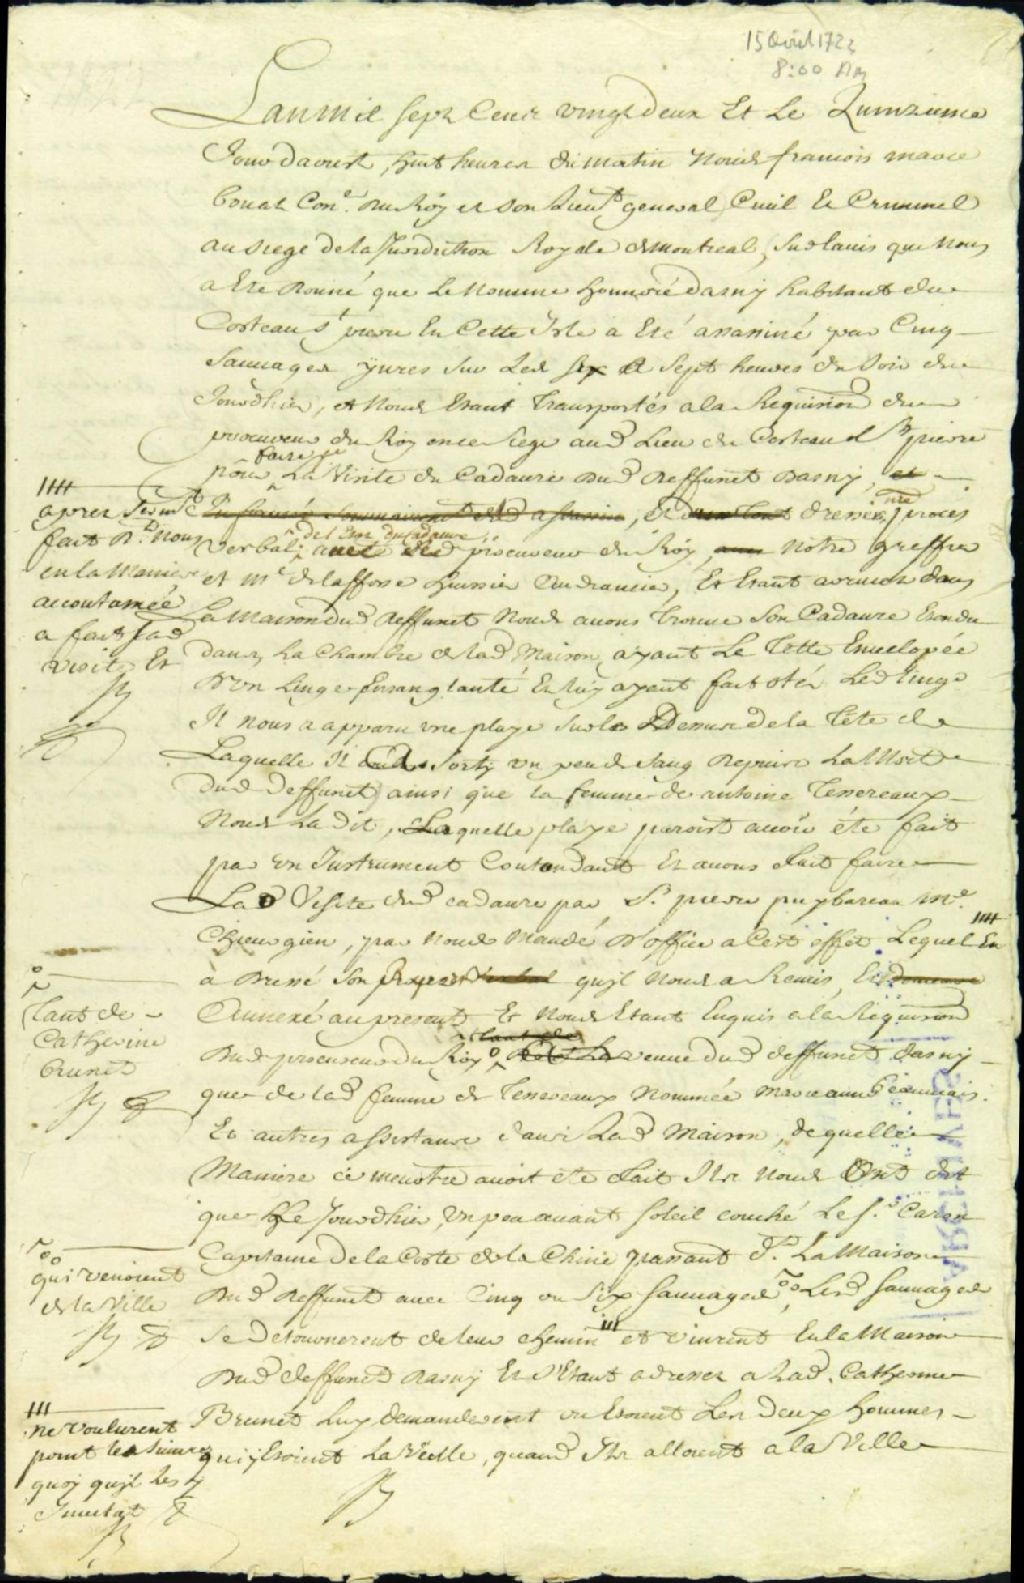 15 Avril 1722
8:00 AM
Lan mil sept Cent vingt deux Et Le Quinziéme
Jour davril, huit heures du matin Nous francois marie
bouat Con.er du Roy et son Lieut.t general Civil Et Criminel
au siege de la Jurisdiction Royale de montreal, sur lavis que Nous
a Ete donné que Le Nommé honnoré dasny habitant du
Costeau s.t pierre En Cette Isle a Eté assassiné par Cinq
Sauvages yvres sur Les six a Sept heures du Soir du
Jour d'hier, et Nous Etant Transportés a la Requision du
procureur du Roy en ce siege aud Lieu du Costeau St pierre
pour faire La Visite du Cadavre dud deffunct dasny, et
dresser nre proces
verbal de l'Etat du cadavre avec led procureur du Roy, Notre greffier
et m.e de laffosse huissier Audiancier, Et Etant arrivés dans
La Maison dud deffunct Nous avons Trouvé Son Cadavre Etendu
dans La Chambre de lad Maison, ayant Le Teste Envelopée
D'un Linge Ensanglanté Et luy ayant fait oter Led Linge
Il nous a apparu une playe sur le Dessus de la Tête de
Laquelle Il a Sorty un peu de Sang depuis La Mort
dud deffunct ainsi que la femme de antoine Tessereaux
Nous La dit, Laquelle playe paroist avoir été fait
par un Instrument Contondant Et avons fait faire
Lad Visite dud cadavre par S.r pierre puybareau M.e
Chirurgien, par Nous Mandé D'office a Cest effet Lequel En
a Dressé Son qu'jl Nous a Remis, Et
Annexé au present Et Nous Etant Enquis a la Requision
Dud procureur du Roy veuve dud deffunct dasny
que de lad femme de Tessereaux Nommée marie anne beauvais
Et autres assistans dans Lad Maison, de quelle
Maniere ce meurtre avoit eté fait Ils Nous Ont dit
que Le Jour d'hier, Un peu avant soleil couché Le s.r Caron
Capitaine de la Coste de la Chine passant d.t La Maison
Dud deffunct avec Cinq ou Six Sauvages, Lesd Sauvages
Se detournerent de leur chemin et vinrent En la Maison
Dud deffunct dasny Et S'Etant adresser a Lad. Catherine
Brunet Luy demanderent ou Etoient Les deux hommes
qui y Etoient La Veille, quand Ils alloient a la Ville
apres serment
fait p.d Nous
en la Maniere
accoutumée
a fait lad
visite Et
Tant de
Catherine
brunet
qui venoient
de la Ville
ne voulurent
point les suivre
quoy qu'jl Les y
Invitat
ARCHIVES